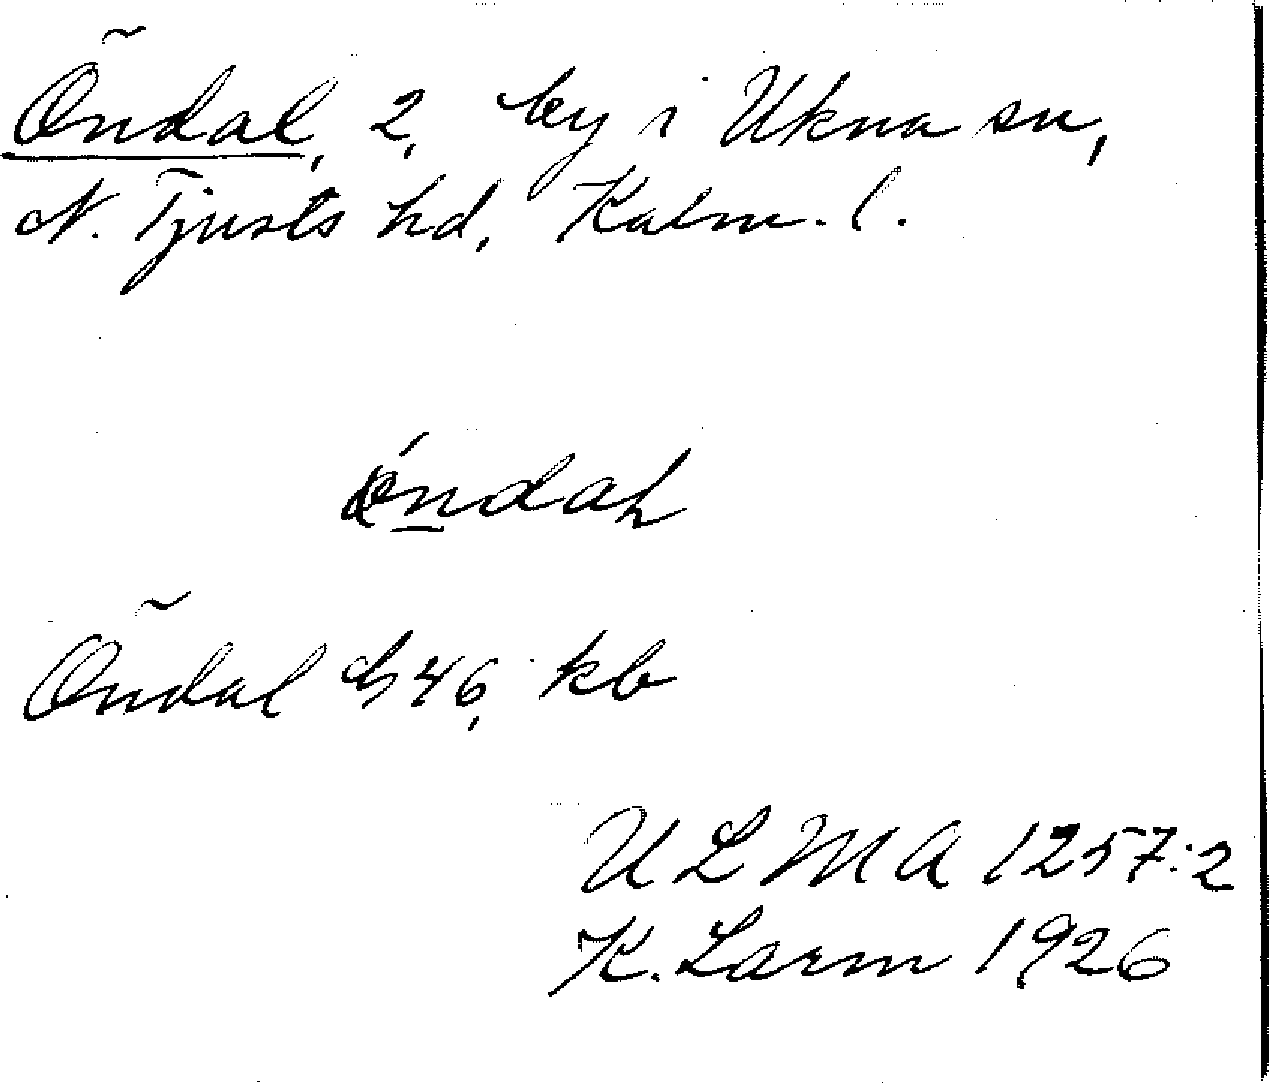 Öndal, 2, by i Ukna sn,
N. Tjusts hd, Kalm. l.
Öndal G46, kb
ULMA 1257:2
K. Larm 1926